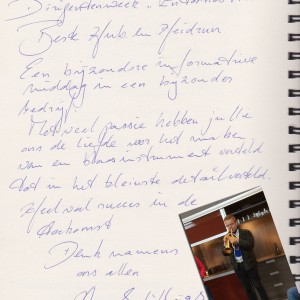 Beste
Een bijzondere informatieve
middag in een bijzonder
bedrijf.
Met veel passie hebben jullie
ons de liefde voor het maken
van een blaasinstrument verteld
tot in het kleinste detail verteld.
Heel veel succes in de
toekomst
Denk namens
ons allen